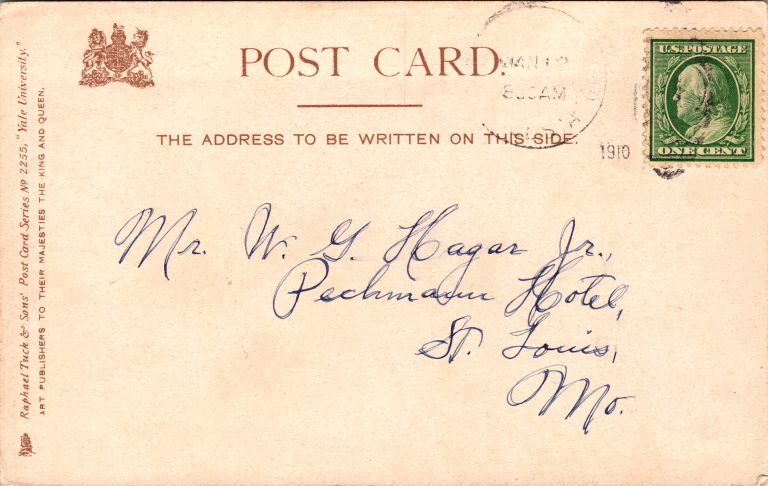 POST CARD.
THE ADDRESS TO BE WRITTEN ON THIS SIDE.
Raphael Tuck & Sons' Post Card Series Nº 2255, "Yale University."
ART PUBLISHERS TO THEIR MAJESTIES THE KING AND QUEEN.
JAN
AM
1910
U.S. POSTAGE
ONE CENT
Mr. W. G. Hagar Jr.,
Peckmann Hotel,
St. Louis,
Mo.